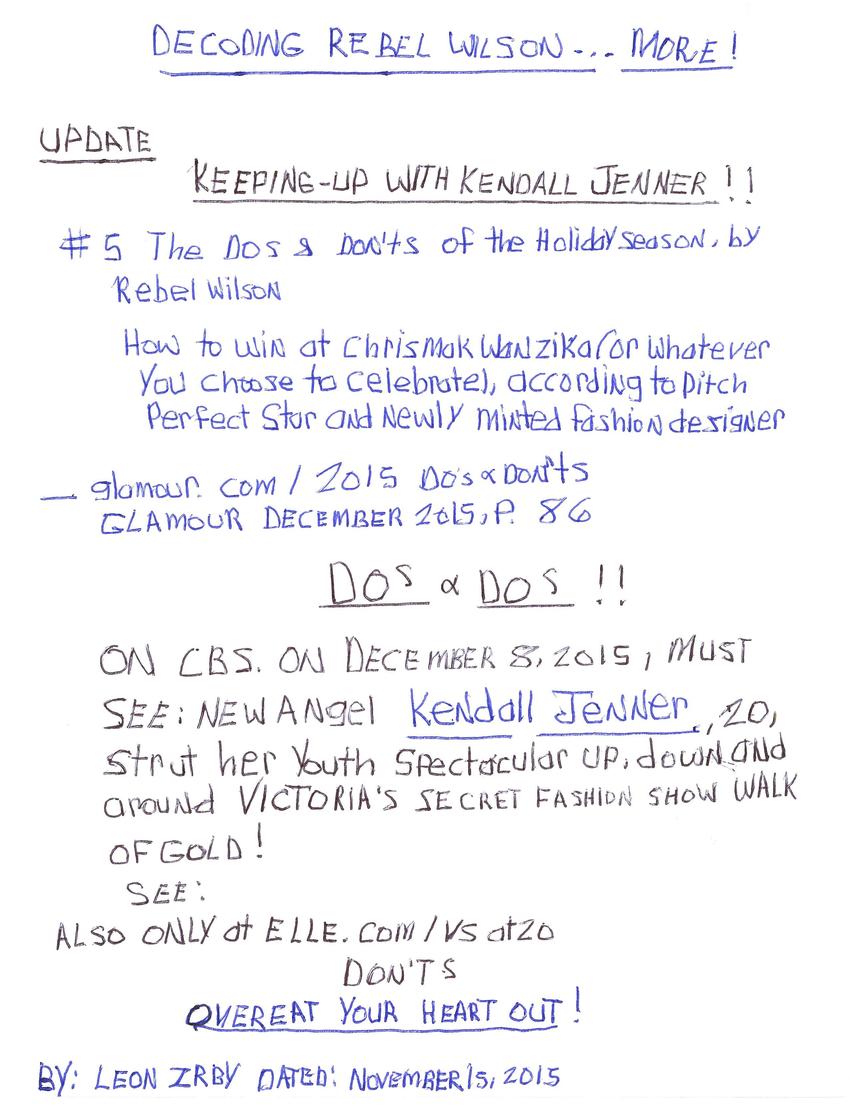 DECODING REBEL WILSON... MORE!
UPDATE
KEEPING-UP WITH KENDALL JENNER!!
#5 The Dos & DON'ts of the Holiday season, by
Rebel Wilson
How to win at ChrisMaKWaNzika (or whatever
You choose to celebrate), according to Pitch
Perfect Star and Newly minted fashion designer
— glamour.com/2015 Do's & Don'ts
GLAMOUR DECEMBER 2015, P. 86
DOS & DOS!!
ON CBS. ON DECEMBER 8, 2015, MUST
SEE: NEW ANgel Kendall Jenner, 20,
Strut her Youth Spectacular UP, down and
around VICTORIA'S SECRET FASHION SHOW WALK
OF GOLD!
SEE:
ALSO ONLY at ELLE.com/VS at20
DON'TS
OVEREAT YOUR HEART OUT!
BY: LEON IRBY DATED: NOVEMBER 15, 2015